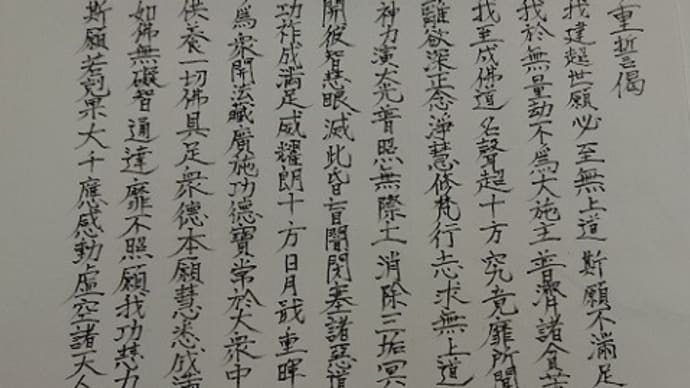 重誓偈
我建超世願必至無上道斯願不滿足
我於無量劫不為大施主普濟諸貧苦
我至成佛道名聲超十方究竟靡所聞
離欲深正念淨慧修梵行志求無上道
神力演大光普照無際土消除三垢冥
開彼智慧眼滅此昏盲闇閉塞諸惡道
功祚成滿足威耀朗十方日月戢重暉
為衆開法藏廣施功德寶常於大衆中
供養一切佛具足衆德本願慧悉成滿
如佛無礙智通達靡不照願我功慧力
斯願若剋果大千應感動虛空諸天人